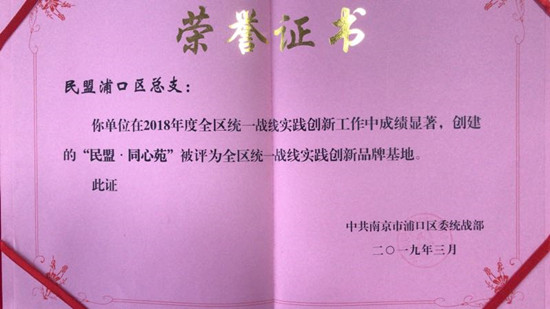 荣誉证书
民盟浦口区总支：
你单位在2018年度全区统一战线实践创新工作中成绩显著，创建
的“民盟·同心苑”被评为全区统一战线实践创新品牌基地。
此证
中共南京市浦口区委统战部
二〇一九年三月